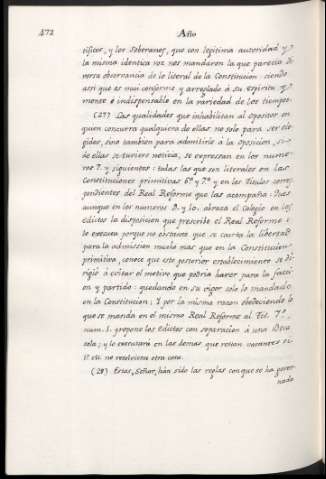 472 Año
tífices, y los Soberanos, que con legítima autoridad y
la misma identica voz nos mandaron la que parecia di-
versa observancia de lo literal de la Constitucion: siendo
assi que es mui conforme y arreglado à su espiritu y
mente è indispensable en la variedad de los tiempos.
(27) Las qualidades que inhabilitan al Opositor en
quien concurra qualquiera de ellas no solo para ser ele-
gidos, sino tambien para admitirle à la Oposicion,
de ellas se tuviere noticia, se expressan en los nume-
ros 7. y siguientes: todas las que son literales en las
Constituciones primitivas 6ª y 7ª y en los titulos corres-
pondientes del Real Reforme que las acompaña: Pues
aunque en los numeros 8. y 10. abraza el Colegio en los
edictos la disposicion que prescribe el Real Reforme
lo executa porque no obstante que se coarta la libertad
para la admission mucho mas que en la Constitucion
primitiva, conoce que este posterior establecimiento se di-
rigiò à evitar el motivo que podria haver para la facci-
on y partido: quedando en su vigor solo lo mandado
en la Constitucion; Y por la misma razon obedeciendo lo
que se manda en el mismo Real Reforme al Tit. 7º,
num. 1. propone los Edictos con separacion à una
y lo executarà en las demas que restan vacantes si
V. M. no resolviere otra cosa.
(28) Estas, Señor, han sido las reglas con que se ha gover-
nado